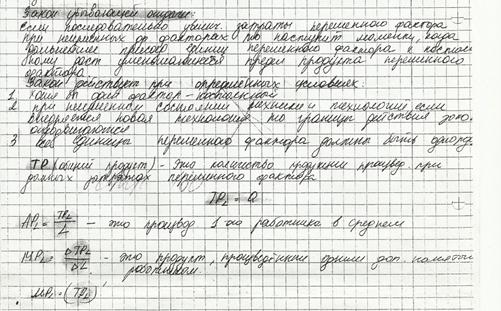 Закон убывающей отдачи:
Если последовательно увелич. затраты переменного фактора
при неизменных др факторах то наступит момент, когда
дальнейшее единиц переменного фактора к постоян
ному даст уменьшающийся предел продукта переменного
фактора
Закон действует при определённых условиях:
1 хотя б один фактор - постоянный
2 при неизменном состоянии техники и технологии если
внедряется новая технология то границы действия
3 все единицы переменного фактора должны быть однор.
TP (общий продукт) - это количество продукции произвед. при
затратах переменного фактора
TPL = Q
APL = TPL/L - это произвед 1-го работника в среднем
MPL = ΔTPL/ΔL - это продукт, произведённый одним доп. нанятым
работником.
MPL = (TPL)'